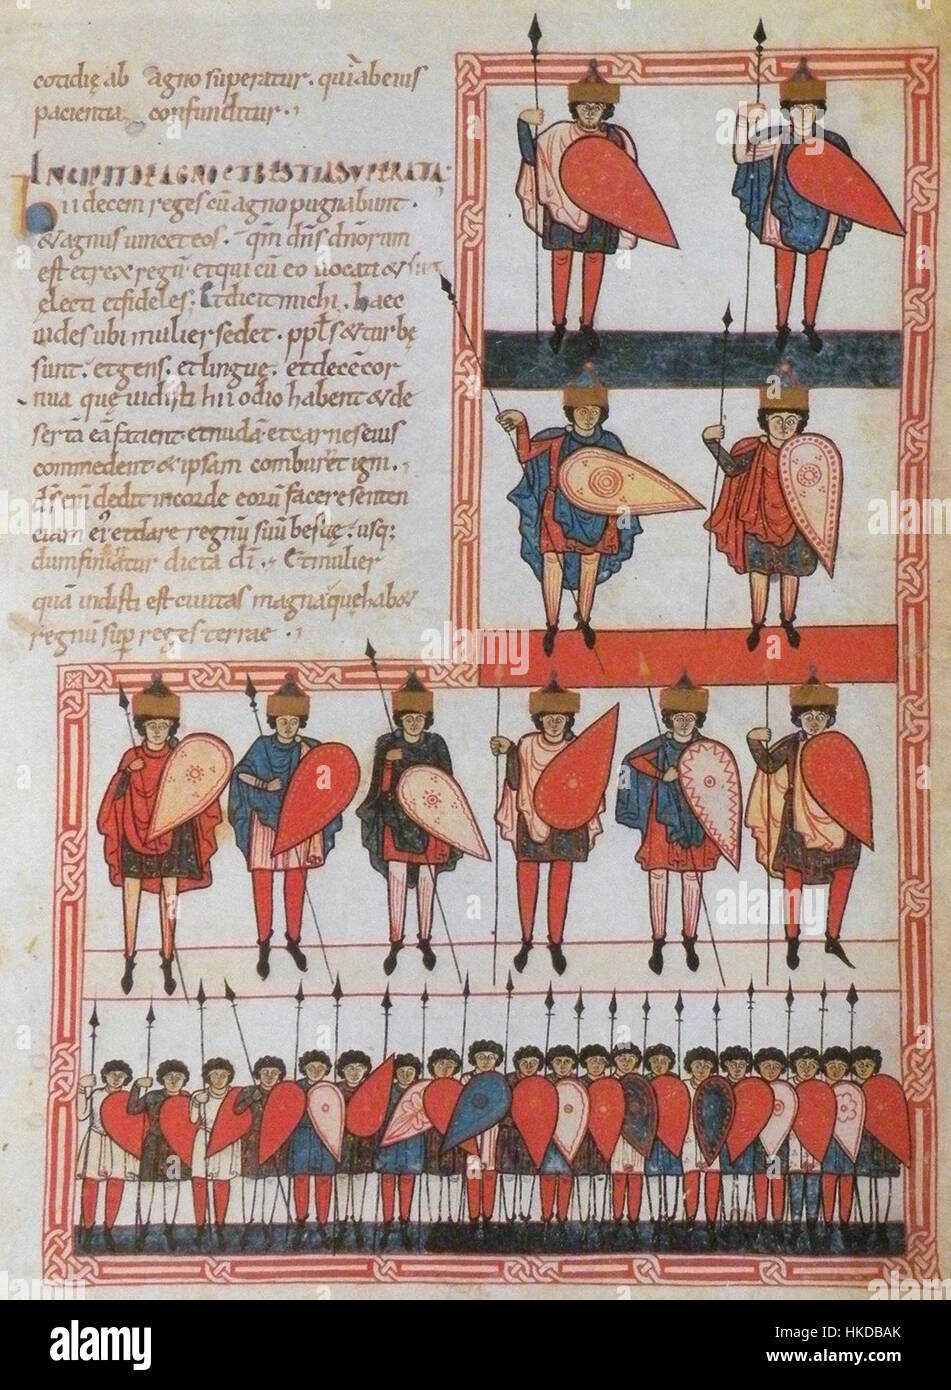 cotidię ab agno superatur. qui ab eius
pacientia confunditur.
INCIPIT DE AGNO ET BESTIA SUPERATA.
hii decem reges cū agno pugnabunt.
& agnus uincet eos. qm̄ dn̄s dn̄orum
est et rex regū et qui cū eo uocati & sūt
ęlecti et fideles; Et dicit michi. haec
uides ubi mulier sedet. ppl̄s & turbę
sunt. et gens. et linguę. et decē cor
nua quę uidisti hii odio habent & de
sertā eā fatient et nudā et carnes eius
commedent & ipsam combur& igni.
dś enī dedit in corde eorū facere senten
ciam ei et dare regnū suū bestię. usq;
dum finiatur dicta dī. Et mulier
quā uidisti est ciuitas magna quę hab&
regnū sup reges terrae.
alamy
Image ID: HKDBAK
www.alamy.com